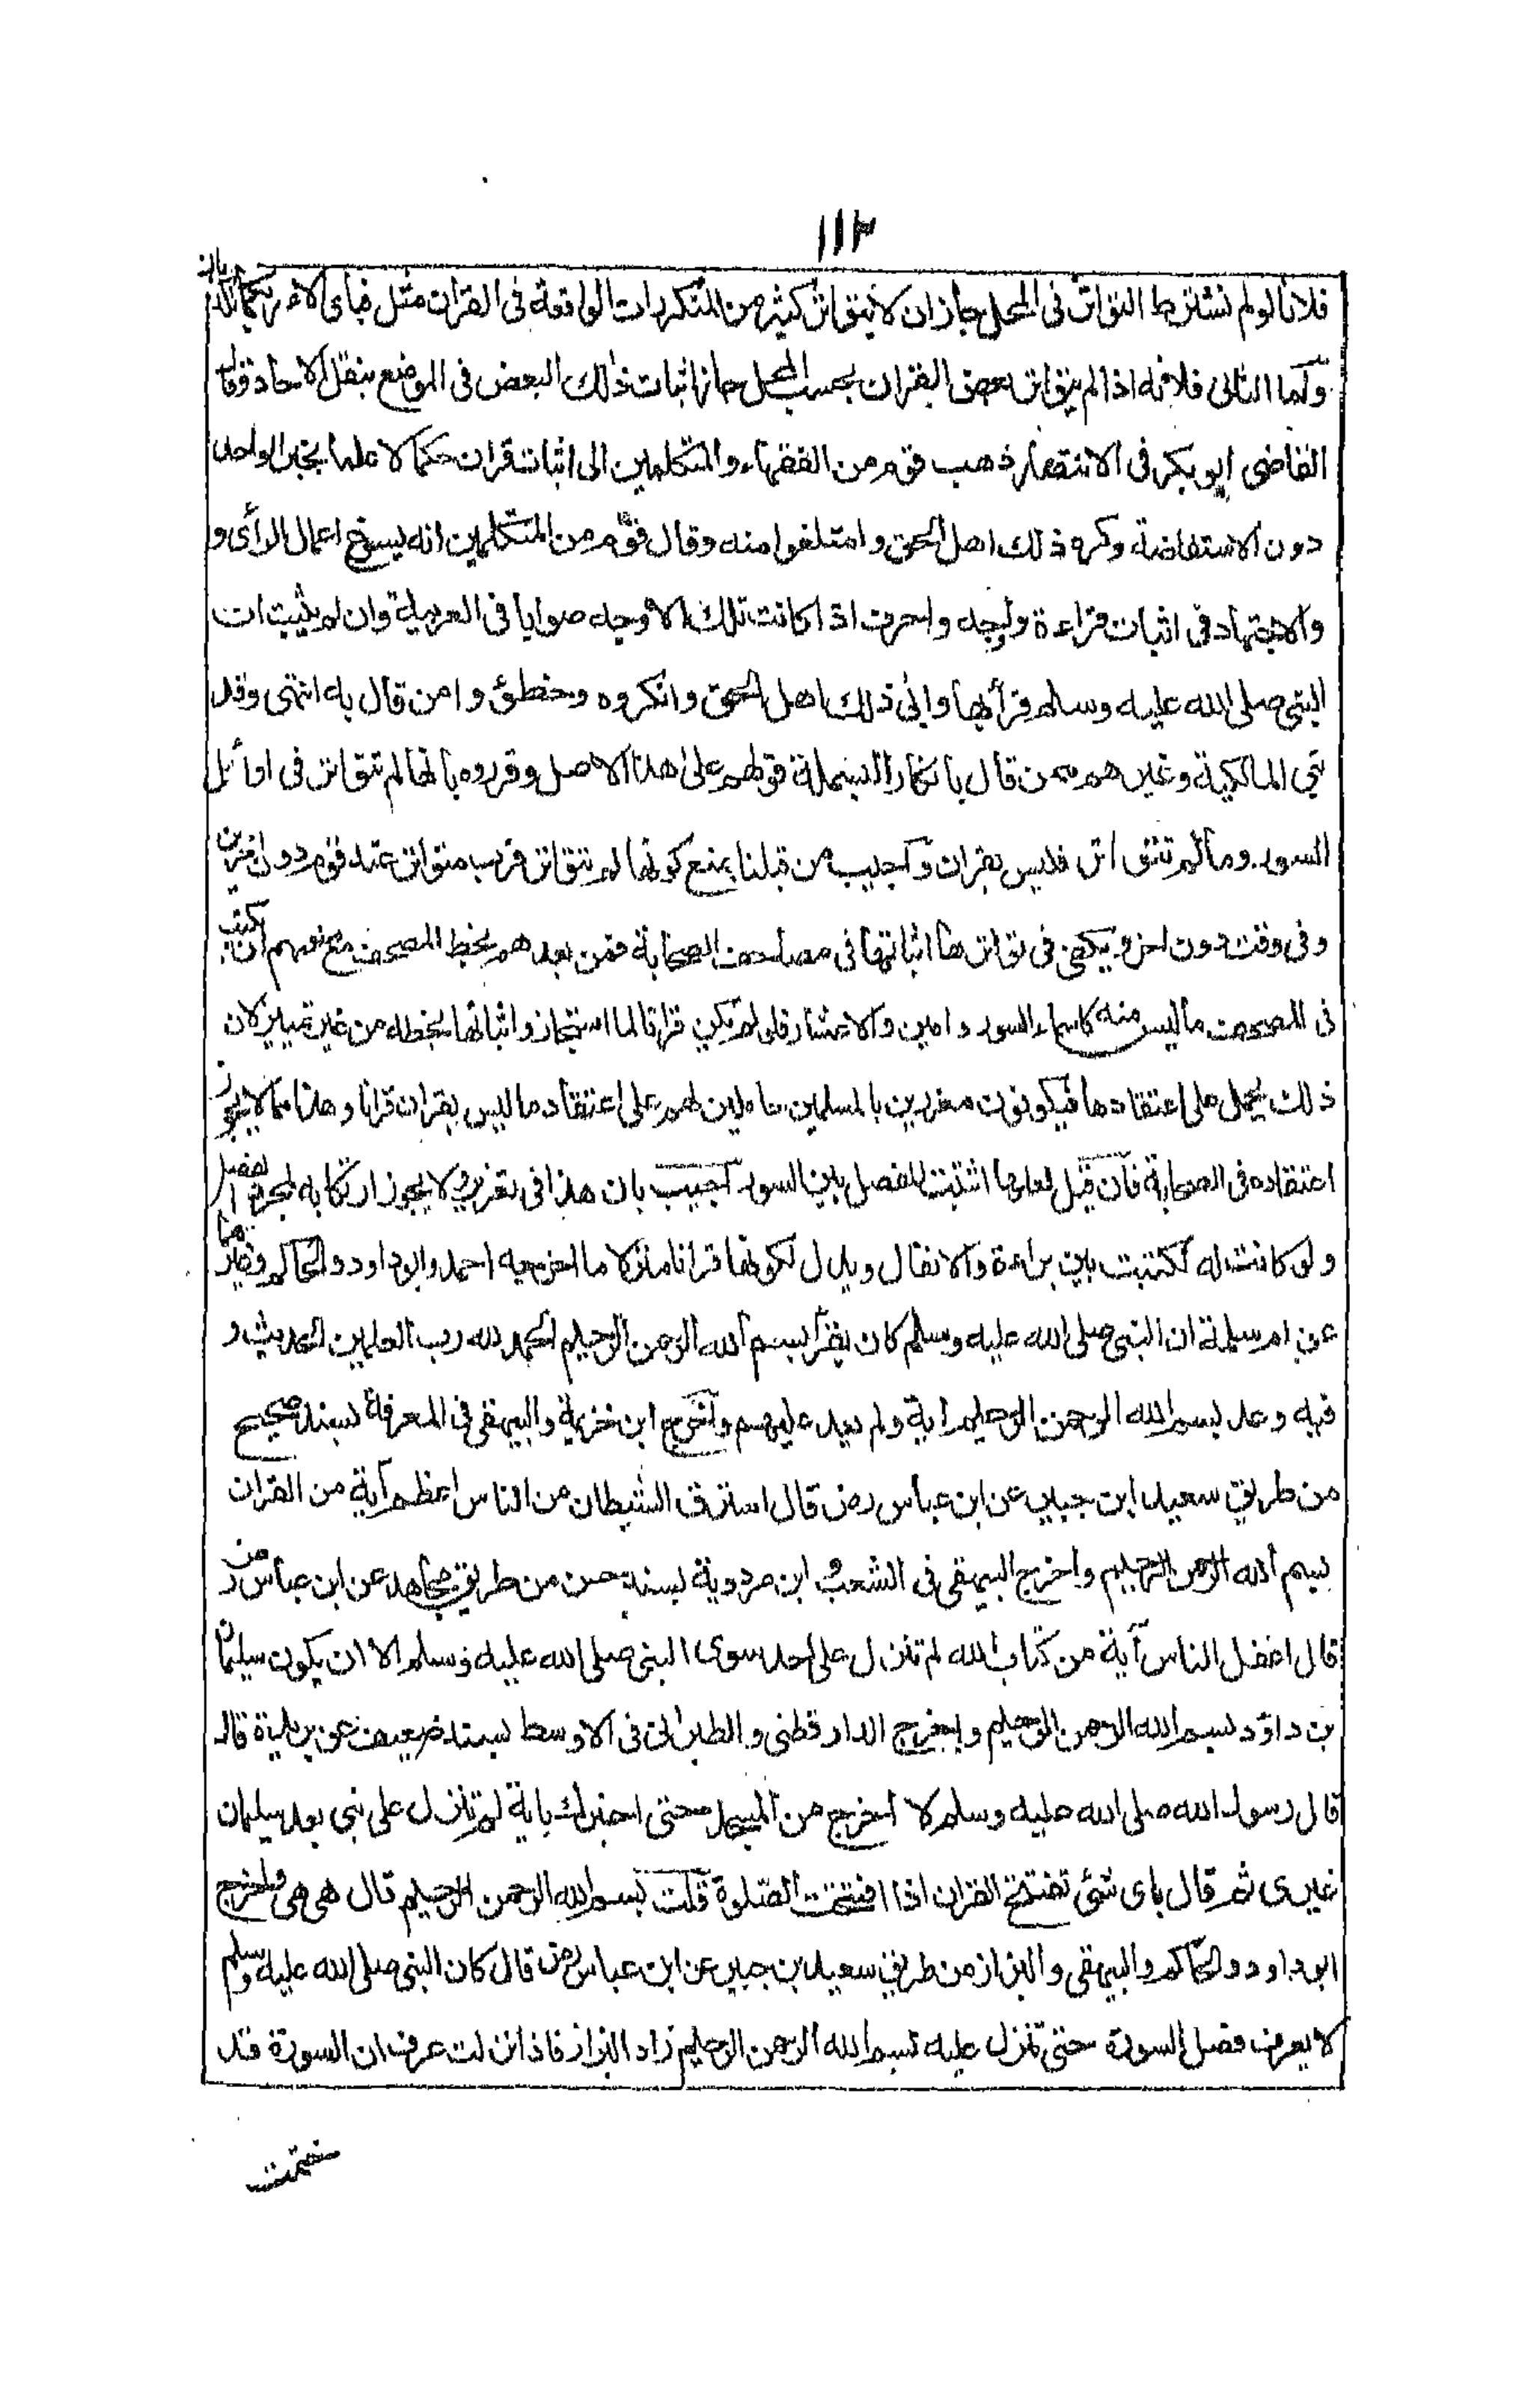 ١١٢
فلانا لو لم نشترط التواتر فى المحل جاز ان لا يتواتر كثير من المتكررات الواقعة فى القران مثل فباى الاء ربكما تكذبان
وآما الثانى فلانه اذا لم يتواتر بعض القران بحسب المحل جاز اثبات ذلك البعض فى الموضع بنقل الاحاد وقال
القاضى ابو بكر فى الانتصار ذهب قوم من الفقهاء والمتكلمين الى اثبات قران حكما لا علما بخبر الواحد
دون الاستفاضة وكره ذلك اهل الحق وامتلغوا منه وقال قوم من المتكلمين انه يسوغ اعمال الرأى و
والاجتهاد فى اثبات قراءة واوجه واحرف اذا كانت تلك الاوجه صوابا فى العربية وان لم يثبت ان
النبى صلى الله عليه وسلم قرأ بها وابى ذلك اهل الحق وانكروه وخطؤ وا من قال به انتهى وقد
بنى المالكية وغيرهم ممن قال بانكار البسملة قولهم على هذا الاصل وقرروه بانها لم تتواتر فى اوائل
السور وما لم تتواتر فليس بقران وآجيب من قبلنا بمنع كونها لم تتواتر فرب متواتر عند قوم دون اخرين
وفى وقت دون اخر ويكفى فى تواترها اثباتها فى مصاحف الصحابة فمن بعدهم بخط المصحف مع منعهم ان يكتب
فى المصحف ما ليس منه كاسماء السور وامين والاعشار فلو لم تكن قرانا لما استجاز وا اثباتها بخطه من غير تمييز لان
ذلك يحمل على اعتقادها فيكونون مغررين بالمسلمين حاملين لهم على اعتقاد ما ليس بقران قرانا وهذا مما لا يجوز
اعتقاده فى الصحابة فآن قيل لعلها اثبتت للفصل بين السور آجيب بان هذا فى تغرير ولا يجوز ارتكابه لمجرد الفصل
ولو كانت له لكتبت بين براءة والانفال ويدل لكونها قرانا منزلا ما اخرجه احمد وابو داود والحاكم وغيرهما
عن ام سلمة ان النبى صلى الله عليه وسلم كان يقرأ بسم الله الرحمن الرحيم الحمد لله رب العلمين الحديث و
فيه وعد بسم الله الرحمن الرحيم اية ولم يعد عليهم وآخرج ابن خزيمة والبيهقى فى المعرفة بسند صحيح
من طريق سعيد ابن جبير عن ابن عباس رض قال استرق الشيطان من الناس اعظم آية من القران
بسم الله الرحمن الرحيم واخرج البيهقى فى الشعب و ابن مردوية بسند حسن من طريق مجاهد عن ابن عباس رض
قال اغفل الناس آية من كتاب الله لم تنزل على احد سوى النبى صلى الله عليه وسلم الا ان يكون سليمان
بن داؤد بسم الله الرحمن الرحيم واخرج الدار قطنى والطبرانى فى الاوسط بسند ضعيف عن بريدة قال
قال رسول الله صلى الله عليه وسلم لا اخرج من المسجد حتى اخبرك باية لم تنزل على نبى بعد سليمان
غيرى ثم قال باى شئ تفتتح القران اذا افتتحت الصلوة قلت بسم الله الرحمن الرحيم قال هى هى واخرج
ابو داود والحاكم والبيهقى والبزاز من طريق سعيد بن جبير عن ابن عباس رض قال كان النبى صلى الله عليه وسلم
لا يعرف فصل السورة حتى تنزل عليه بسم الله الرحمن الرحيم زاد البزاز فاذا نزلت عرف ان السورة قد
ختمت